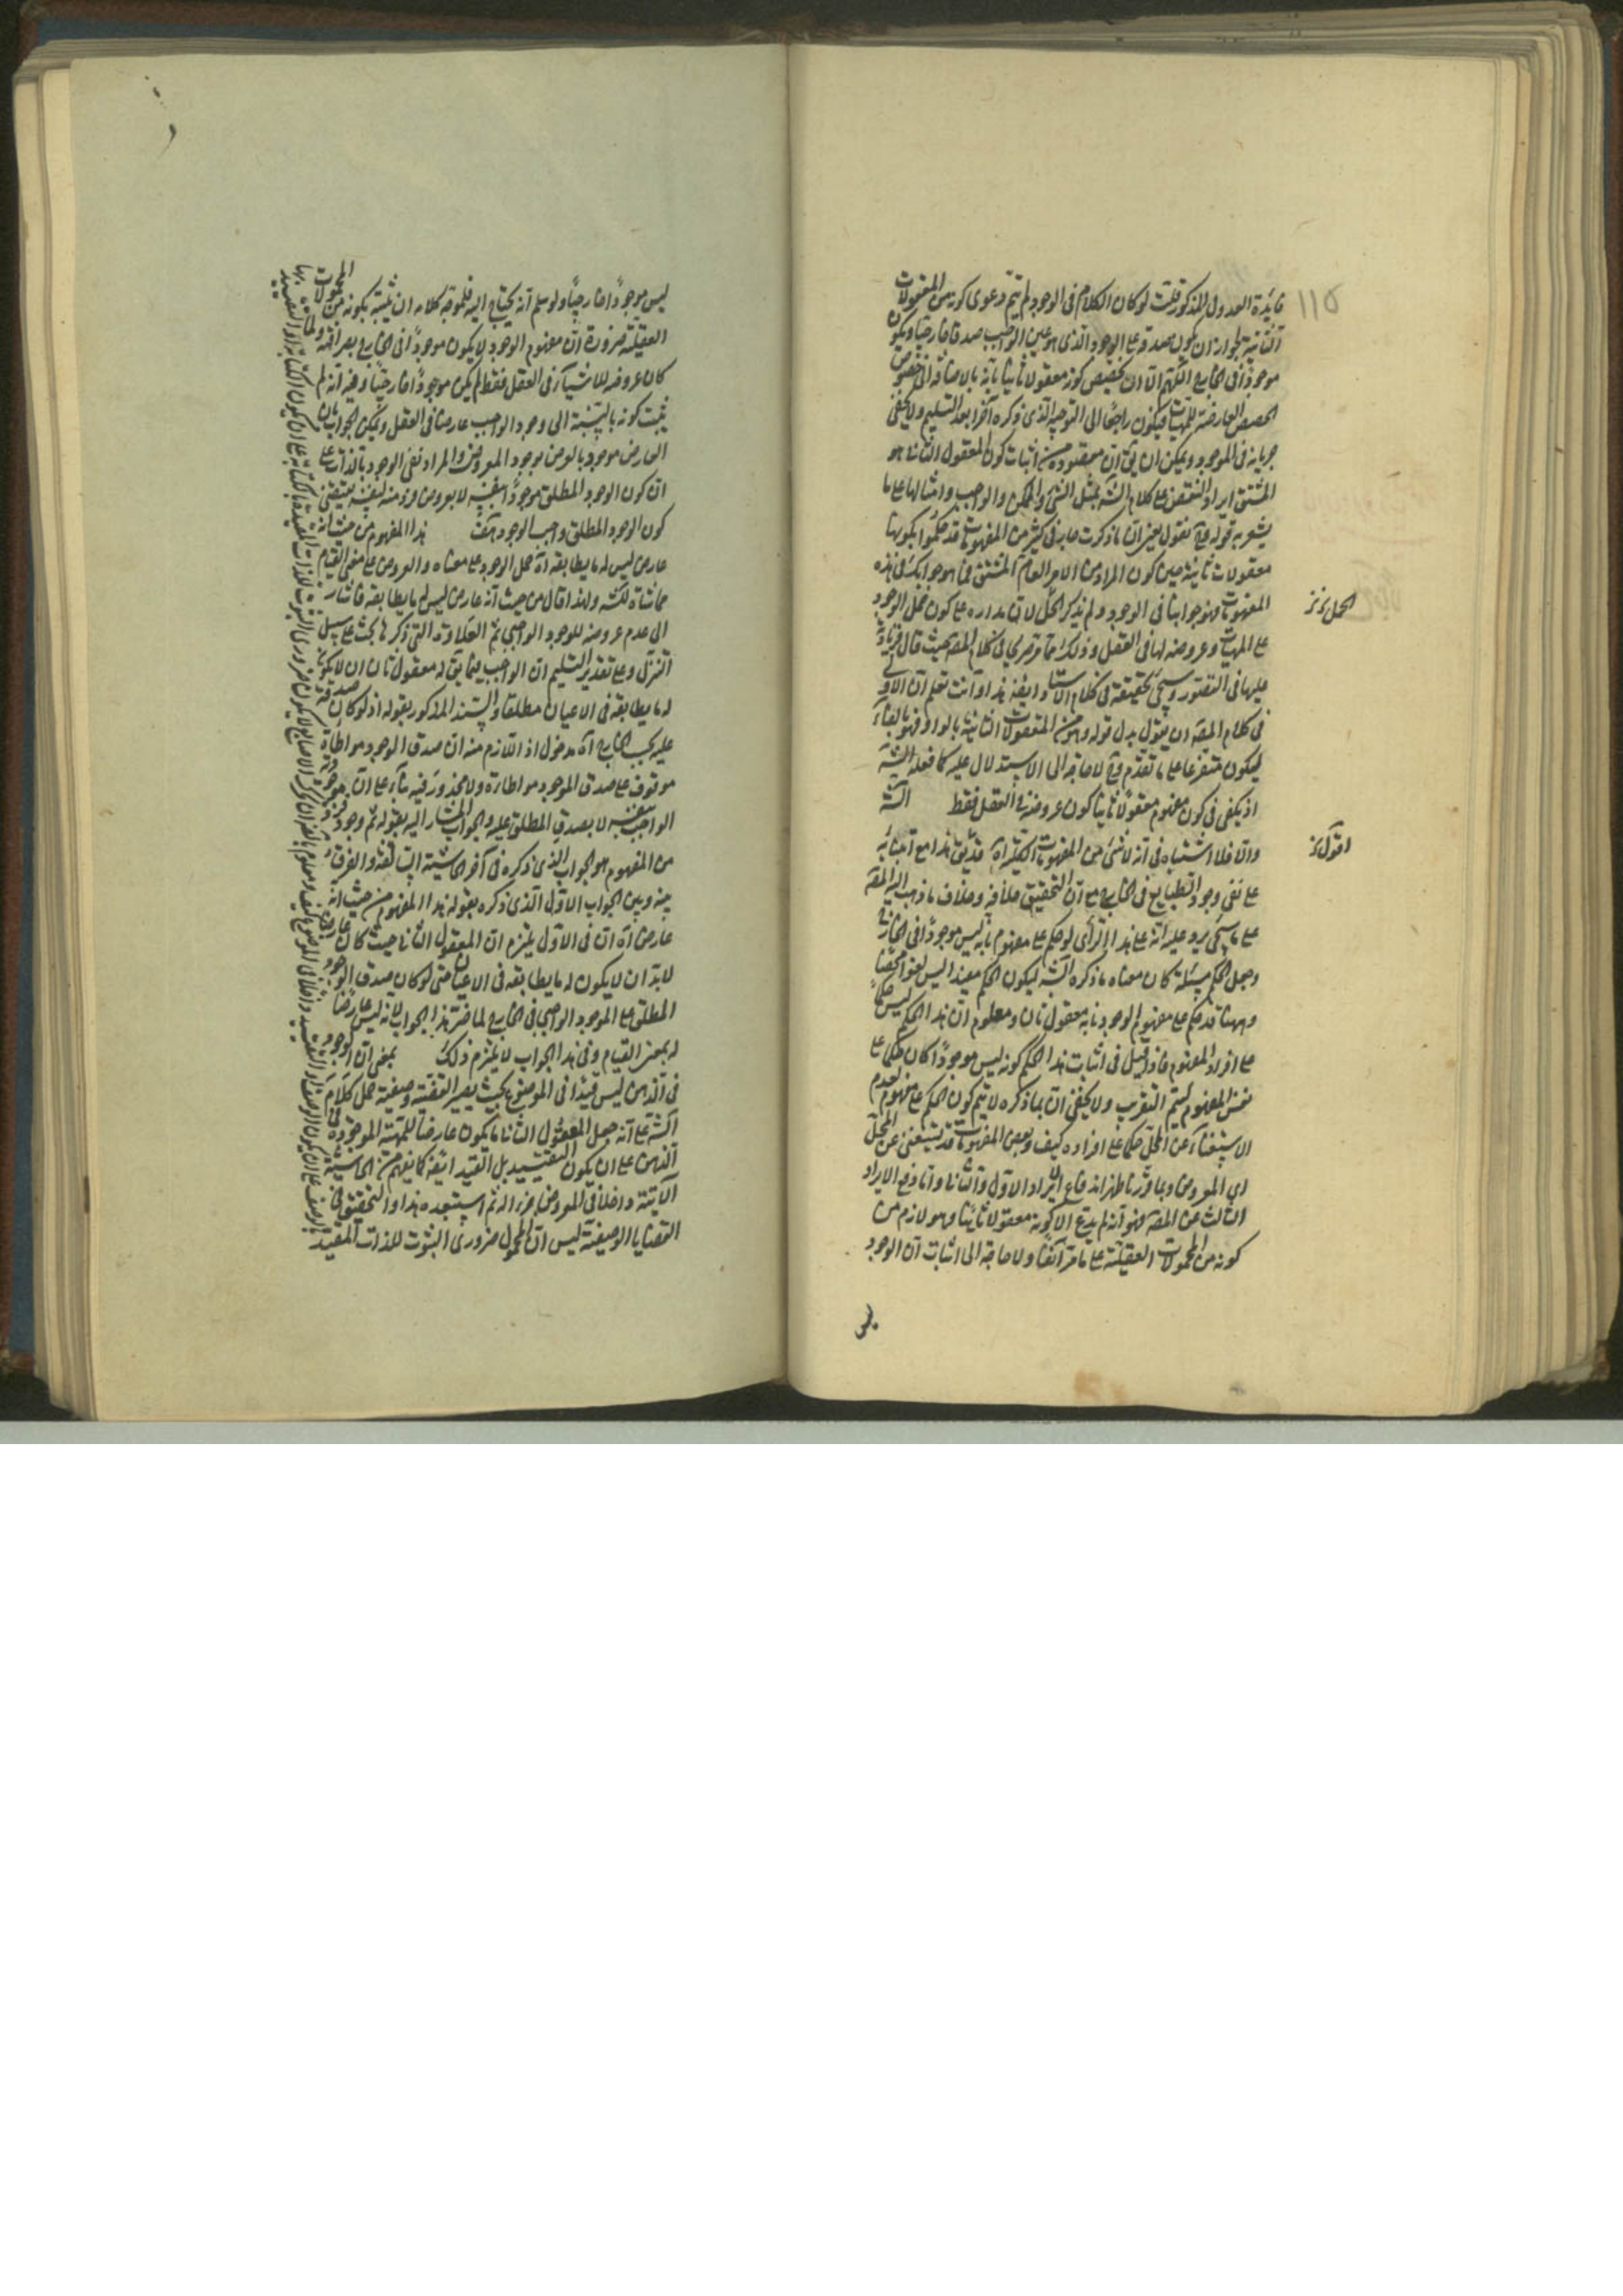 ١١٥
فايدة العدول المذكور قلت لو كان الكلام فى الوجود لم يتم دعوى كونه من المعقولات
الثانية لجواز ان يكون صدقه على الوجود الذى هو عين الواجب صدقا خارجيا ويكون
موجودا فى الخارج اللهم الا ان يخصص كونه معقولا ثانيا بانه بالاضافة الى خصوص
الحصص العارضة للمهيات فيكون راجعا الى التوجيه الذى ذكره آخرا بعد التسليم ولا يخفى
جريانه فى الموجود ويمكن ان يق ان مقصوده من اثبات كون المعقول الثانى هو
المشتق ايراد النقض على كلام الشه بمثل الشئ والممكن والواجب وامثالها على ما
يشعر به قوله فح نقول يعنى ان ما ذكرت جار فى كثير من المفهومات قد حكموا بكونها
معقولات ثانية حين كون المراد من الامر العام المشتق فما هو جوابك فى هذه
المفهومات فهو جوابنا فى الوجود ولم يذكر الحل لان مداره على كون حمل الوجود
الحل نز
على المهيات وعروضه لها فى العقل وذلك مما مر صريحا فى كلام المصه حيث قال فزيادته
عليها فى التصور وسيجئ تحقيقه فى كلام الاستاد ايضه هذا وانت تعلم ان الاولى
فى كلام المصه ان يقول بدل قوله وهو من المعقولات الثانية بالواو فهو بالفاء
ليكون متفرعا على ما تقدم فح لا حاجة الى الاستدلال عليه كما فعله الشه
اذ يكفى فى كون مفهوم معقولا ثانيا كون عروضه فى العقل فقط الشه
والا فلا اشتباه فى انه لا شئ من المفهومات الكلية اه قد يق هذا مع ابتنائه
اقول نز
على نفى وجود الطبايع فى الخارج مع ان التحقيق خلافه وخلاف ما ذهب اليه المصه
على ما سيجئ يرد عليه انه على هذا الرأى لو حكم على مفهوم بانه ليس موجودا فى الخارج
وجعل الحكم مسئلة كان معناه ما ذكره الشه ليكون الحكم مفيدا ليس لغوا محضا
وههنا قد حكم على مفهوم الوجود بانه معقول ثان ومعلوم ان هذا الحكم ليس حكما
على افراد المفهوم فاذا قيل فى اثبات هذا الحكم كونه ليس موجودا كان حكما على
نفس المفهوم ليتم التقريب ولا يخفى ان بما ذكره لا يتم كون الحكم على مفهوم بعدم
الاستغناء عن المحل حكما على افراده كيف وبعض المفهومات قد يستغنى عن المحل
اى المعروض وبما قررنا ظهر اندفاع الايراد الاول والثانى واما دفع الايراد
الثالث عن المصه فهو انه لم يدع الا كونه معقولا ثانيا وهو لازم من
كونه من المحمولات العقلية على ما مر آنفا ولا حاجة الى اثبات ان الوجود
ليس
ليس موجودا خارجيا ولو سلم انه يحتاج اليه فلتوجيه كلامه ان نثبته بكونه من المحمولات
العقلية ضرورة ان مفهوم الوجود لا يكون موجودا فى الخارج بصرافته ولما
كان عروضه للاشياء فى العقل فقط لم يكن موجودا خارجيا وفيه انه لم
يثبت كونه بالنسبة الى وجود الواجب عارضا فى العقل ويمكن الجواب بان
العارض موجود بالعرض بوجود المعروض والمراد نفى الوجود بالذات على
ان كون الوجود المطلق موجودا بنفسه لا بعروض فرد منه لنفسه يقتضى
كون الوجود المطلق واجب الوجود هف هذا المفهوم من حيث انه
عارض ليس له ما يطابقه اه حمل الوجود على معناه والعروض على معنى القيام
مماشاة للشه ولهذا قال من حيث انه عارض ليس له ما يطابقه فاشار
الى عدم عروضه للوجود الواجبى ثم العلاوة التى ذكرها بحث على سبيل
التنزل وعلى تقدير التسليم ان الواجب فيما يق له معقول ثان ان لا يكون
له ما يطابقه فى الاعيان مطلقا والسند المذكور بقوله اذ لو كان صدقه
عليه بحسب الخارج اه مدخول اذ اللازم منه ان صدق الوجود مواطاة
موقوف على صدق الموجود مواطاة ولا محذور فيه بناء على ان موجودية
الواجب بنفسه لا بصدق المطلق عليه والجواب المشار اليه بقوله ثم وجود فرد
من المفهوم هو الجواب الذى ذكره فى آخر الحاشية السابقة والفرق
بينه وبين الجواب الاول الذى ذكره بقوله هذا المفهوم من حيث انه
عارض اه ان فى الاول يلتزم ان المعقول الثانى حيث كان عارضا
لابد ان لا يكون له ما يطابقه فى الاعيان حتى لو كان صدق الوجود
المطلق على الموجود الواجبى فى الخارج لما ضر هذا الجواب لانه ليس عارضا
له بمعنى القيام وفى هذا الجواب لا يلتزم ذلك بمعنى ان الوجود
فى الذهن ليس قيدا فى الموضوع بحيث يصير القضية وصفية حمل كلام
الشه على انه جعل المعقول الثانى ما يكون عارضا للمهية الموجودة فى
الذهن على ان يكون التقييد بل القيد ايضه كما يفهم من الحاشية
الآتية داخلا فى المعروض جزءا له ثم استبعده هذا والتحقيق فى
القضايا الوصفية ليس ان المحمول ضرورى الثبوت للذات المقيد